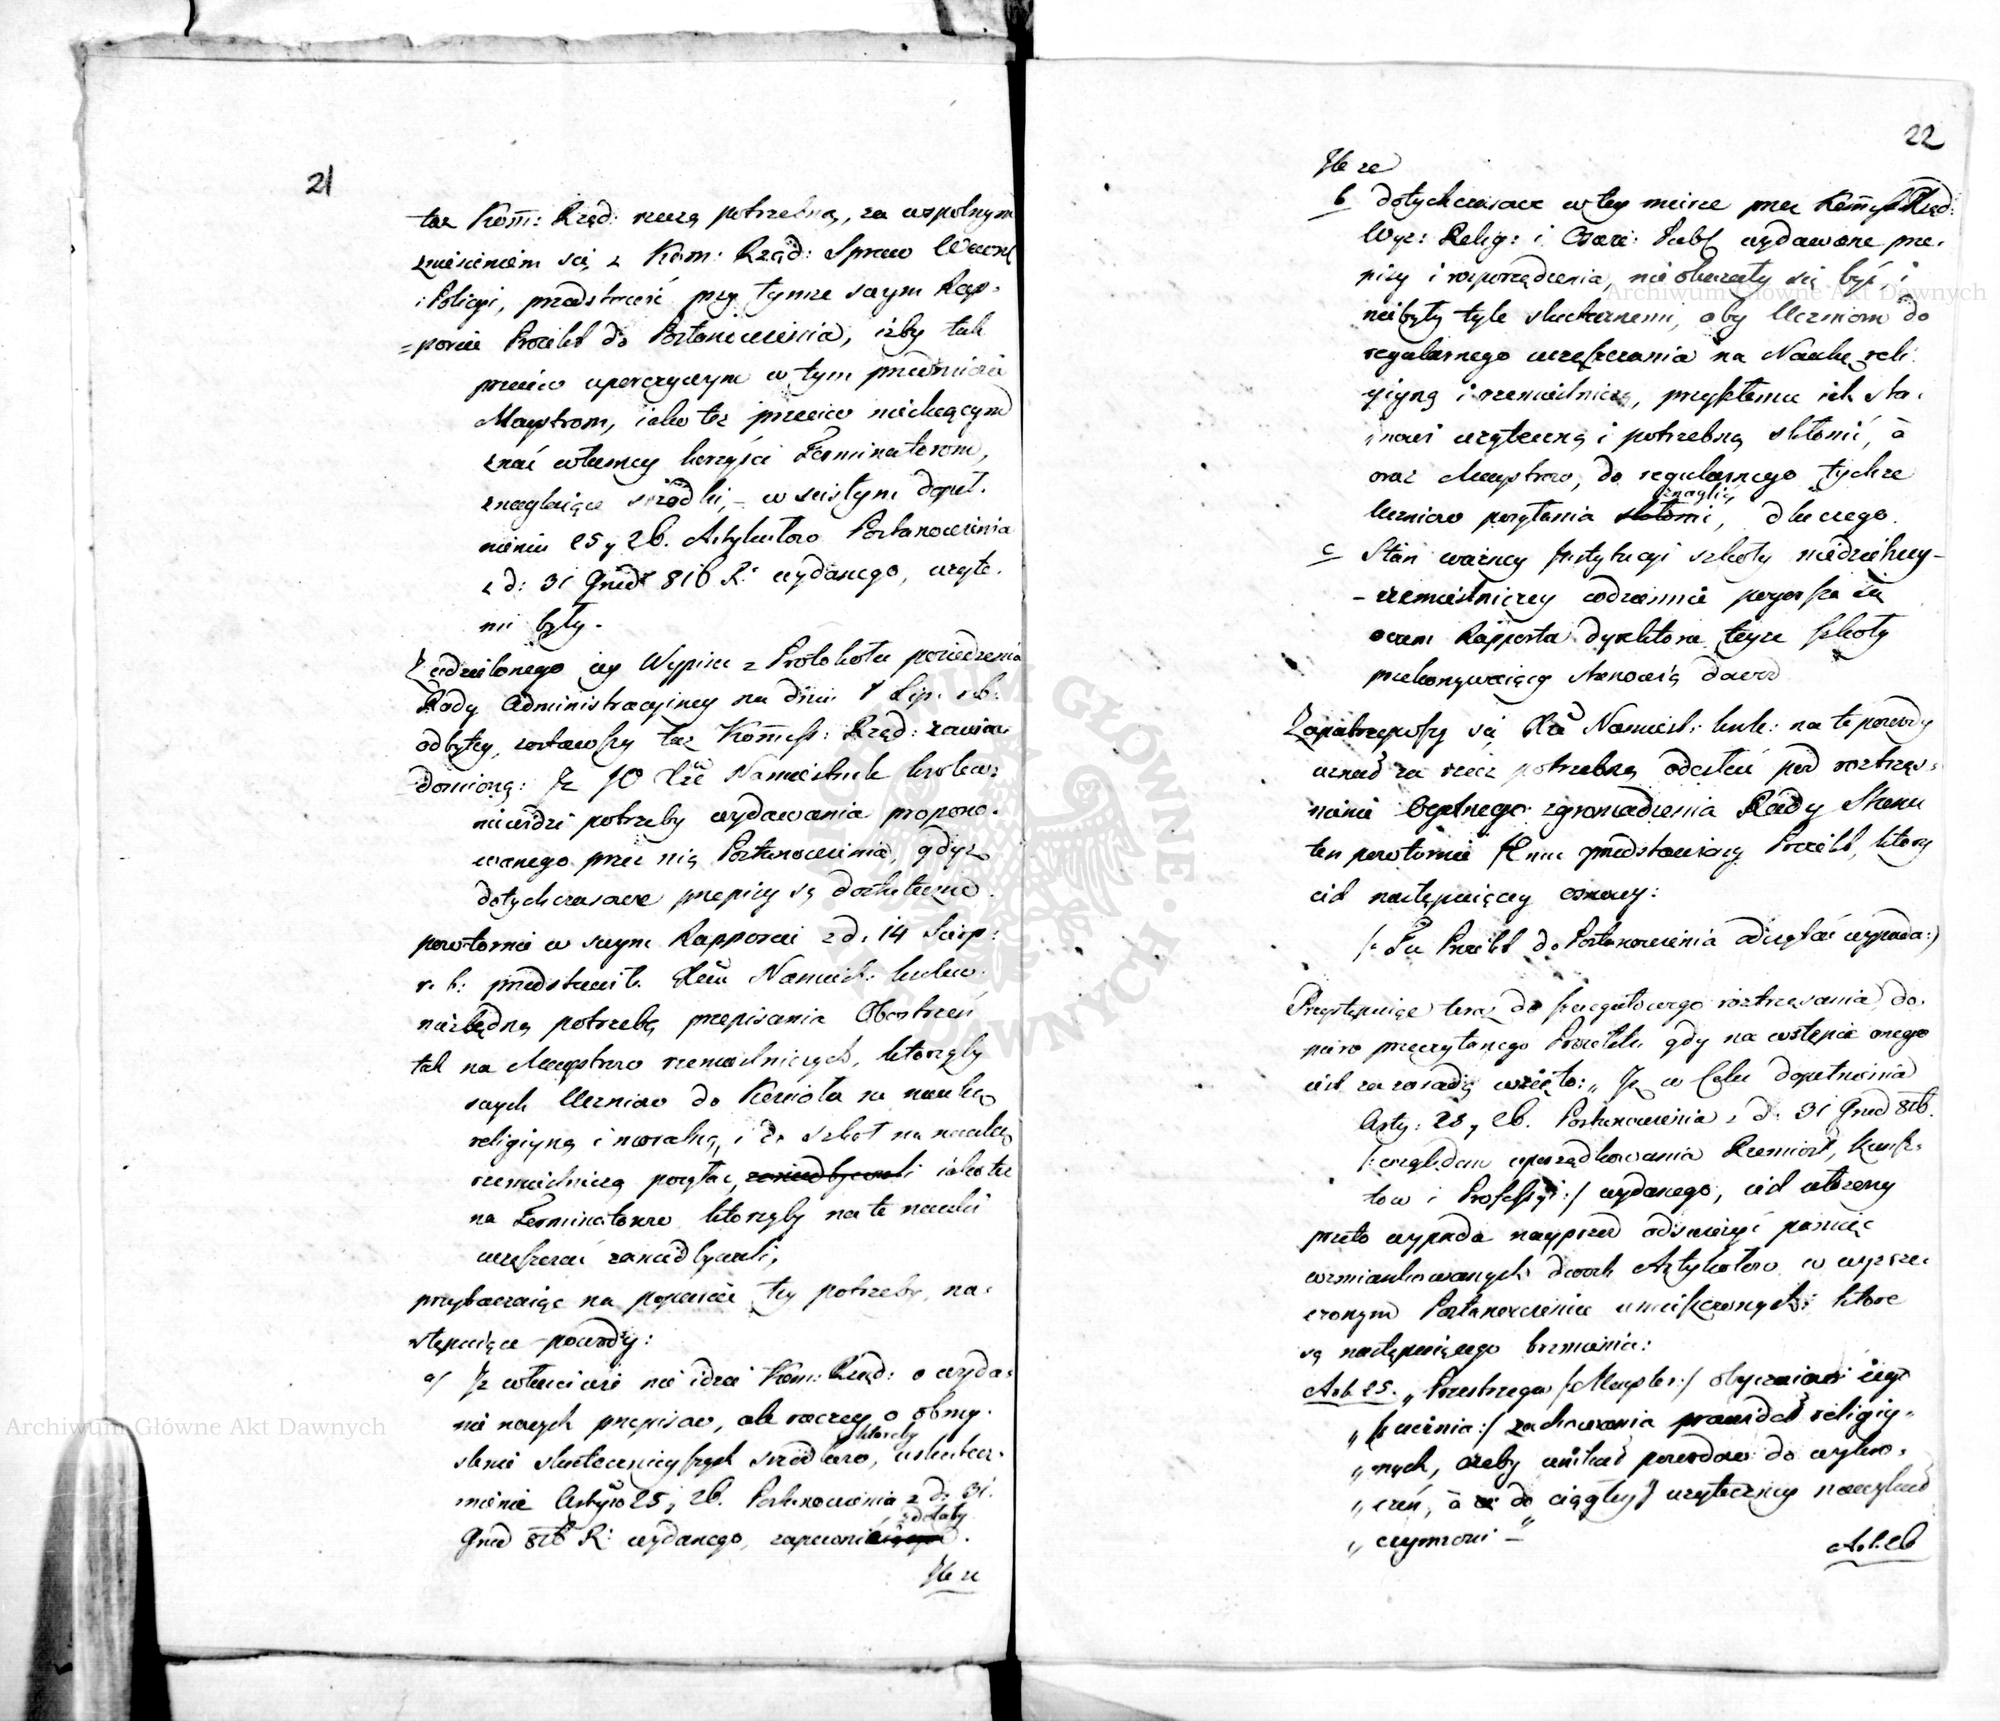 21
taż Kom̄: Rząd: rzeczą potrzebną, za wspolnym
zniesieniem się z Kom: Rząd: Spraw Wewn
i Policyi, przedstawić przy tymże swym Rap-
=porcie Proiekt do Postanowienia, iżby tak
przeciw uporczywym w tym przedmiocie
Maystrom, iako też przeciw niechcącym
znać własney korzyści Terminatorom,
znaglaiące srzodki, – w scisłym dopeł-
nieniu 25 y 26. Artykułow Postanowienia
z d: 31 Grud 816 R: wydanego, użyte-
mi były.
Z udzielonego iey Wypisu z Protokołu posiedzenia
Rady Administracyiney na dniu Lip: r.b.
odbytey, zostawszy taż Kom̄iss: Rząd: zawia-
domioną: Iż JO Xżę Namiestnik krolew:
niewidzi potrzeby wydawania propono-
wanego przez nią Postanowienia, gdyż
dotychczasowe przepisy są dostateczne.
powtornie w swym Rapporcie z d. 14 Sierp:
r. b: przedstawiła Xciu Namiest: krolew:
niezbędną potrzebę przepisania Obostrzeń
tak na Maystrow rzemieślniczych, ktorzyby
swych Uczniow do Kościoła na naukę
religiyną i moralną, i do szkoł na naukę
rzemieślniczą posyłać, zaniedbywali iako też
na Terminatorow ktorzyby na te nauki
uczęszczać zaniedbywali;
przytaczaiąc na poparcie tey potrzeby, na-
stępuiące powody:
a/ Iż właściwie nie idzie Kom: Rząd: o wyda-
nie nowych przepisow, ale raczey o obmy-
ktoreby
slenie skutecznieyszych srzodkow, uskutecz-
nienie Artyłow 25 y 26. Postanowienia z d: 31.
zdołały
Grud 816 R: wydanego, zapewnić
Ile że
22
Ile że
b dotychczasowe w tey mierze przez Kom̄issyą Rząd:
Wyz: Relig: i Oświe: Publ wydawane prze-
pisy i rozporządzenia, nieokazały się być, i
niebyły tyle skutecznemi, aby Uczniow do
regularnego uczęszczania na Naukę reli-
giyną i rzemieślniczą, przyszłemu ich sta-
nowi użyteczną i potrzebną skłonić, à
oraz Maystrow, do regularnego tychże
znaglić
Uczniow posyłania skłonić, dla czego.
c Stan ważney Instytucyi szkoły niedzielney-
-rzemieślniczey codziennie pogorsza się
czem Rapporta Dyrektora teyże szkoły
przekonywaiący stanowią dowod
Zapatrzywszy się Xżę Namiest: krol: na te powody
uznał za rzecz potrzebną odesłać pod roztrzą-
snienie Ogolnego zgromadzenia Rady Stanu
ten powtornie Jemu przedstawiony Proiekt, ktory
iest następuiącey osnowy:
/: Tu Proiekt do Postanowienia odczytać wypada:/
Przystępuiąc teraz do szczegułowego roztrząsania do-
piero przeczytanego Proiektu gdy na wstępie onego
iest za zasadę wzięto: „Iż w Celu dopełnienia
Arty: 25 y 26. Postanowienia z d: 31 Grud 816.
/: względem uporządkowania Rzemiosł, Kunsz-
tow i Professyi :/ wydanego, iest ułożony
przeto wypada nayprzod odświeżyć pamięć
wzmiankowanych dwoch Artykułow w wyrze-
czonym Postanowieniu umieszczonych: ktore
są następuiącego brzmienia:
Art. 25. „Przestrzega /:Mayster:/ obyczaiow iego
„/: ucznia:/ zachowania prawideł religiy-
„nych, ażeby unikać powodow do wykro-
„czeń, à do ciągłey użyteczney nawykał
„czynności –“
Art. 26